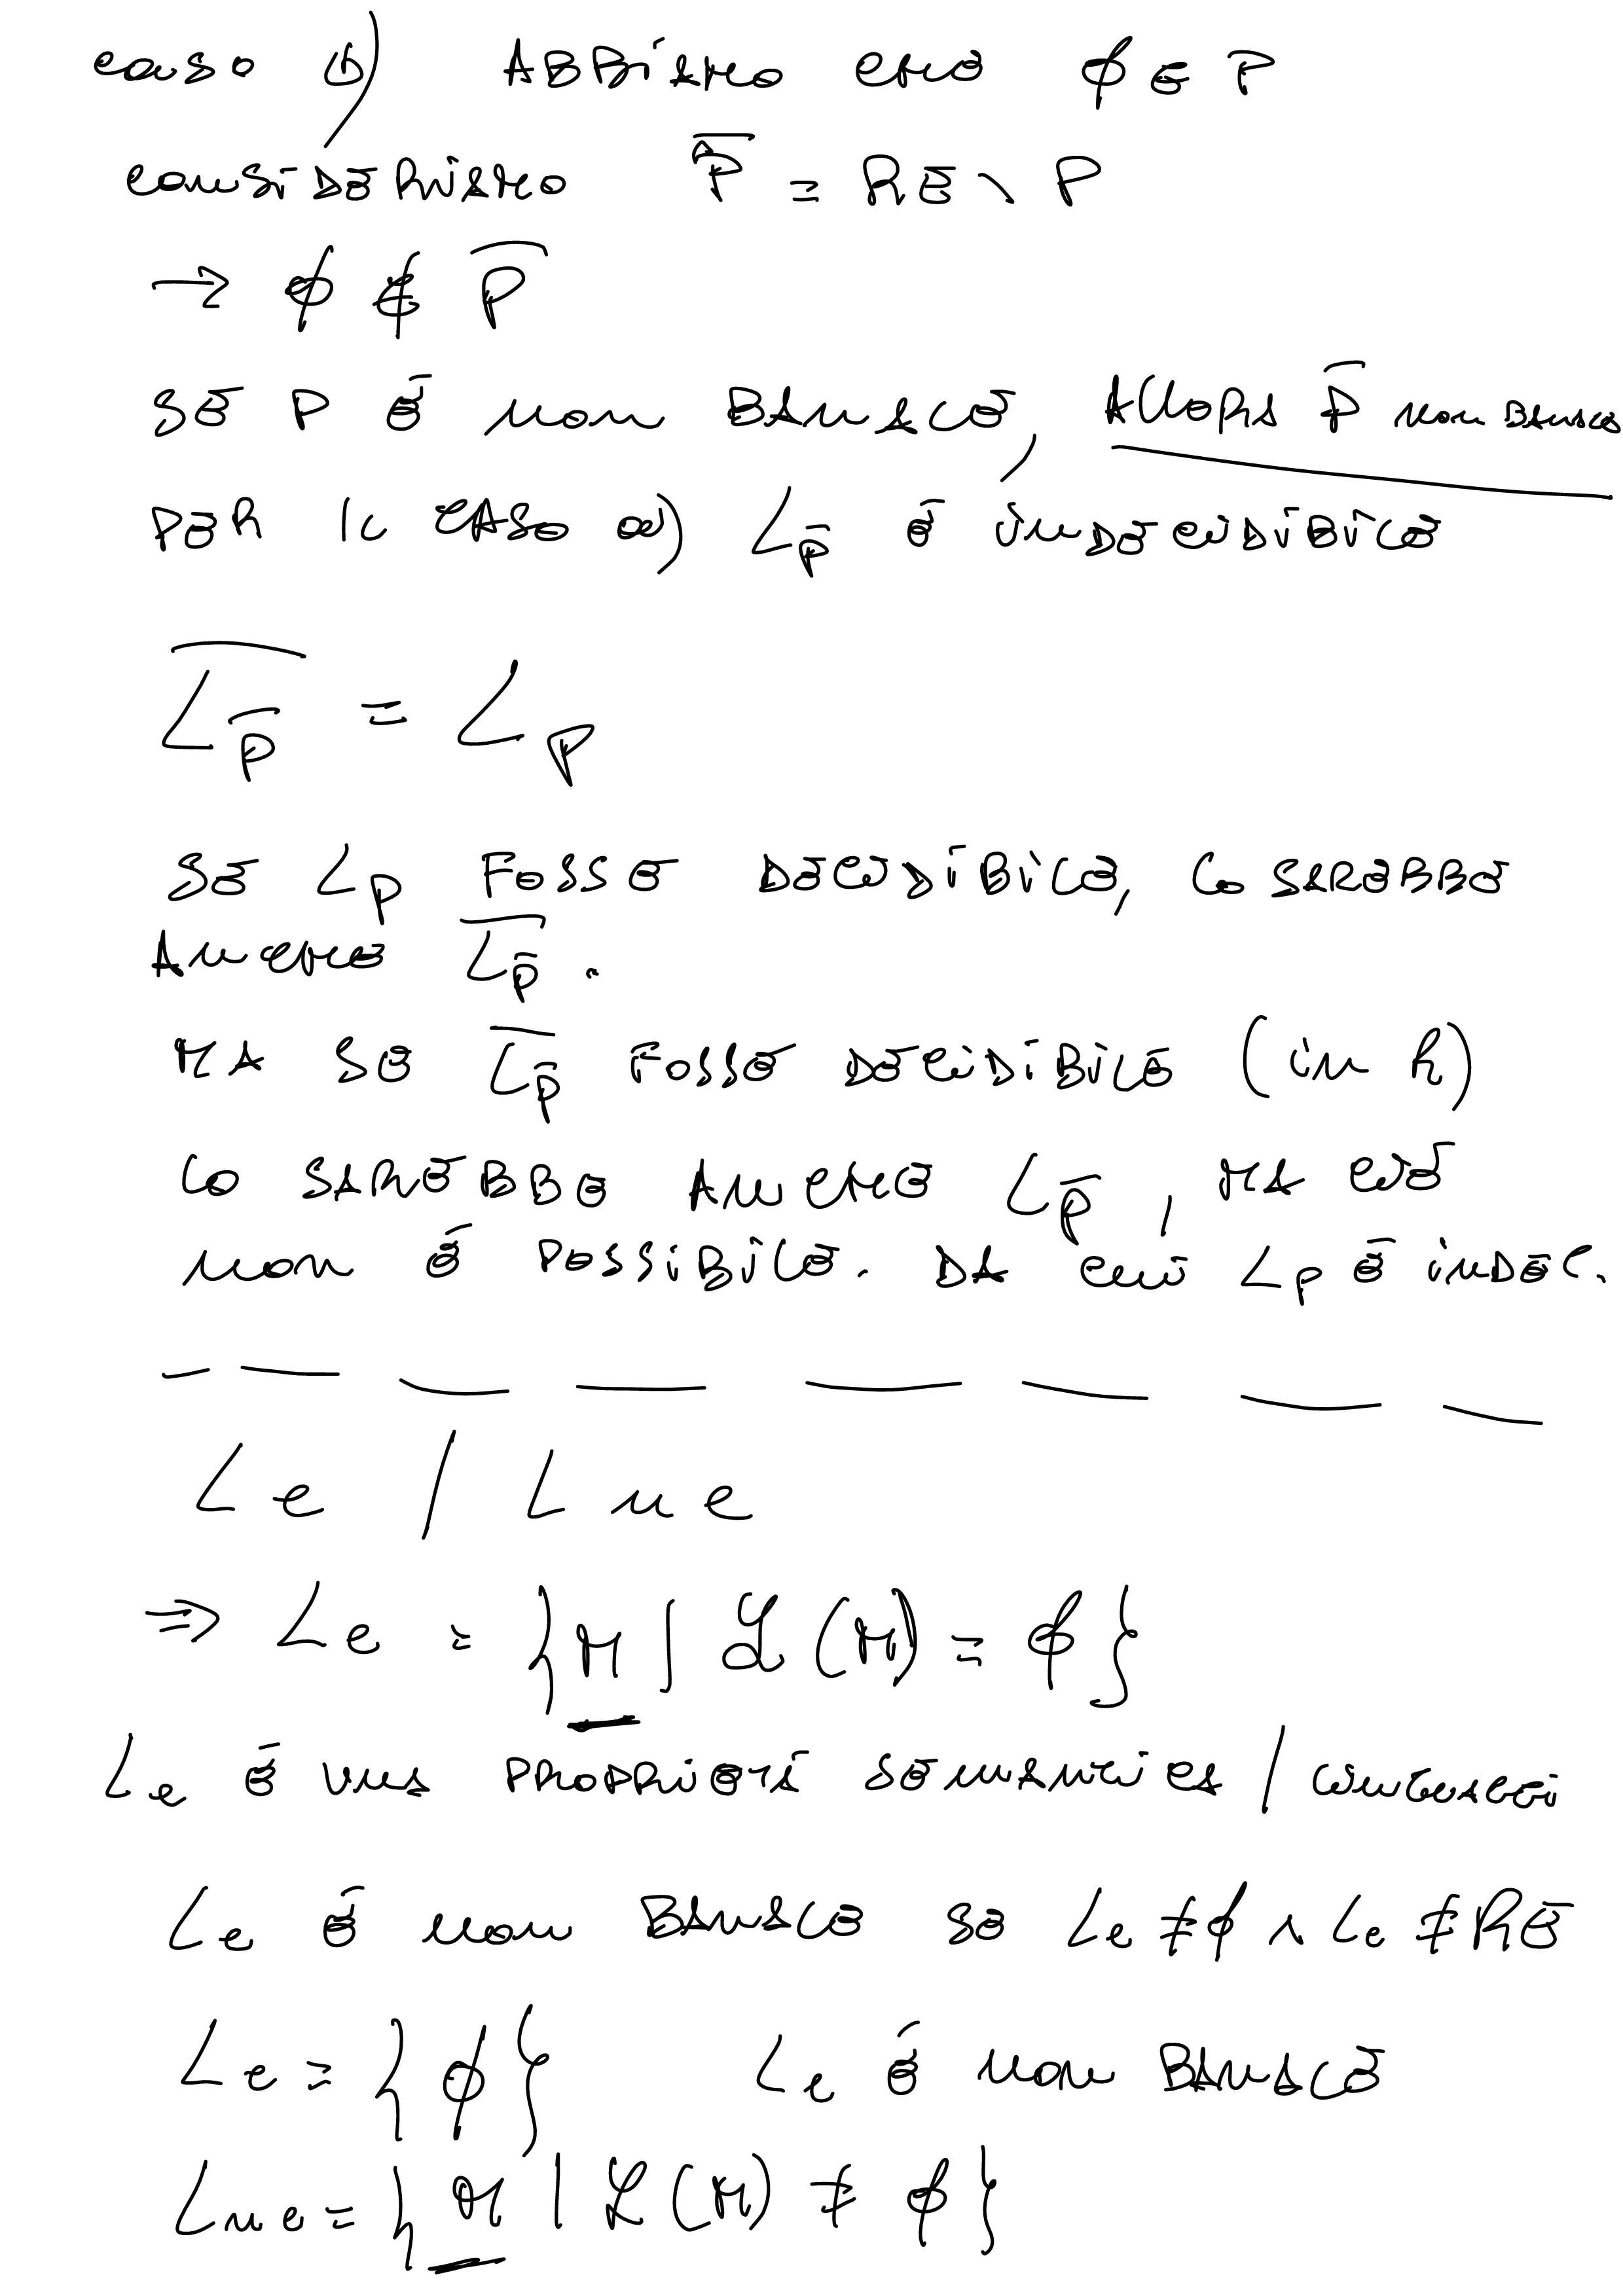 caso b) ABBIAMO CHE ∅ ∈ P
CONSIDERIAMO P̅ = RE \ P
→ ∅ ∉ P̅
SE P È NON BANALE, ALLORA P̅ NON BANALE
PER IL CASO a) L_P̅ È INDECIDIBILE
\overline{L_P̅} = L_P
SE L_P FOSSE DECIDIBILE, LO SAREBBE
ANCHE \overline{L_P̅}.
MA SE \overline{L_P̅} FOSSE DECIDIBILE (in R)
LO SAREBBE ANCHE L_P̅, MA CIÒ
NON È POSSIBILE. DA CUI L_P È INDEC.
Le / Lne
⇒ Le = {M | ℒ(M) = ∅}
Le È UNA PROPRIETÀ SEMANTICA / LINGUAGGI
Le È NON BANALE SE Le ≠ ∅ ∧ Le ≠ RE
Le = {∅} Le È NON BANALE
Lne = {M | ℒ(M) ≠ ∅}